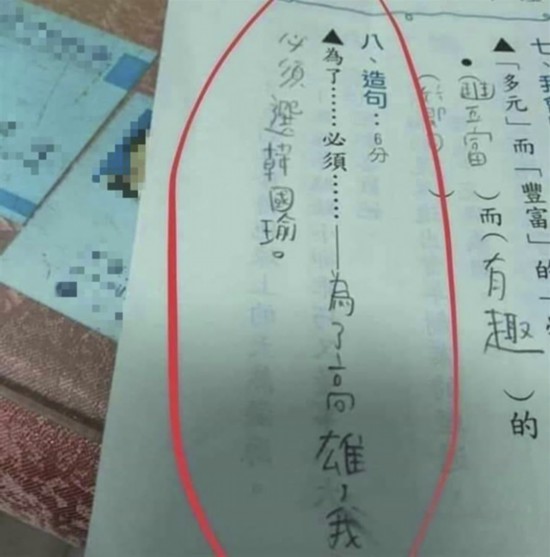 ▲「多元」而「豐富」的
豐富）而（有趣）的
八、造句：6分
▲為了……必須……——為了高雄，我
必須選韓國瑜。